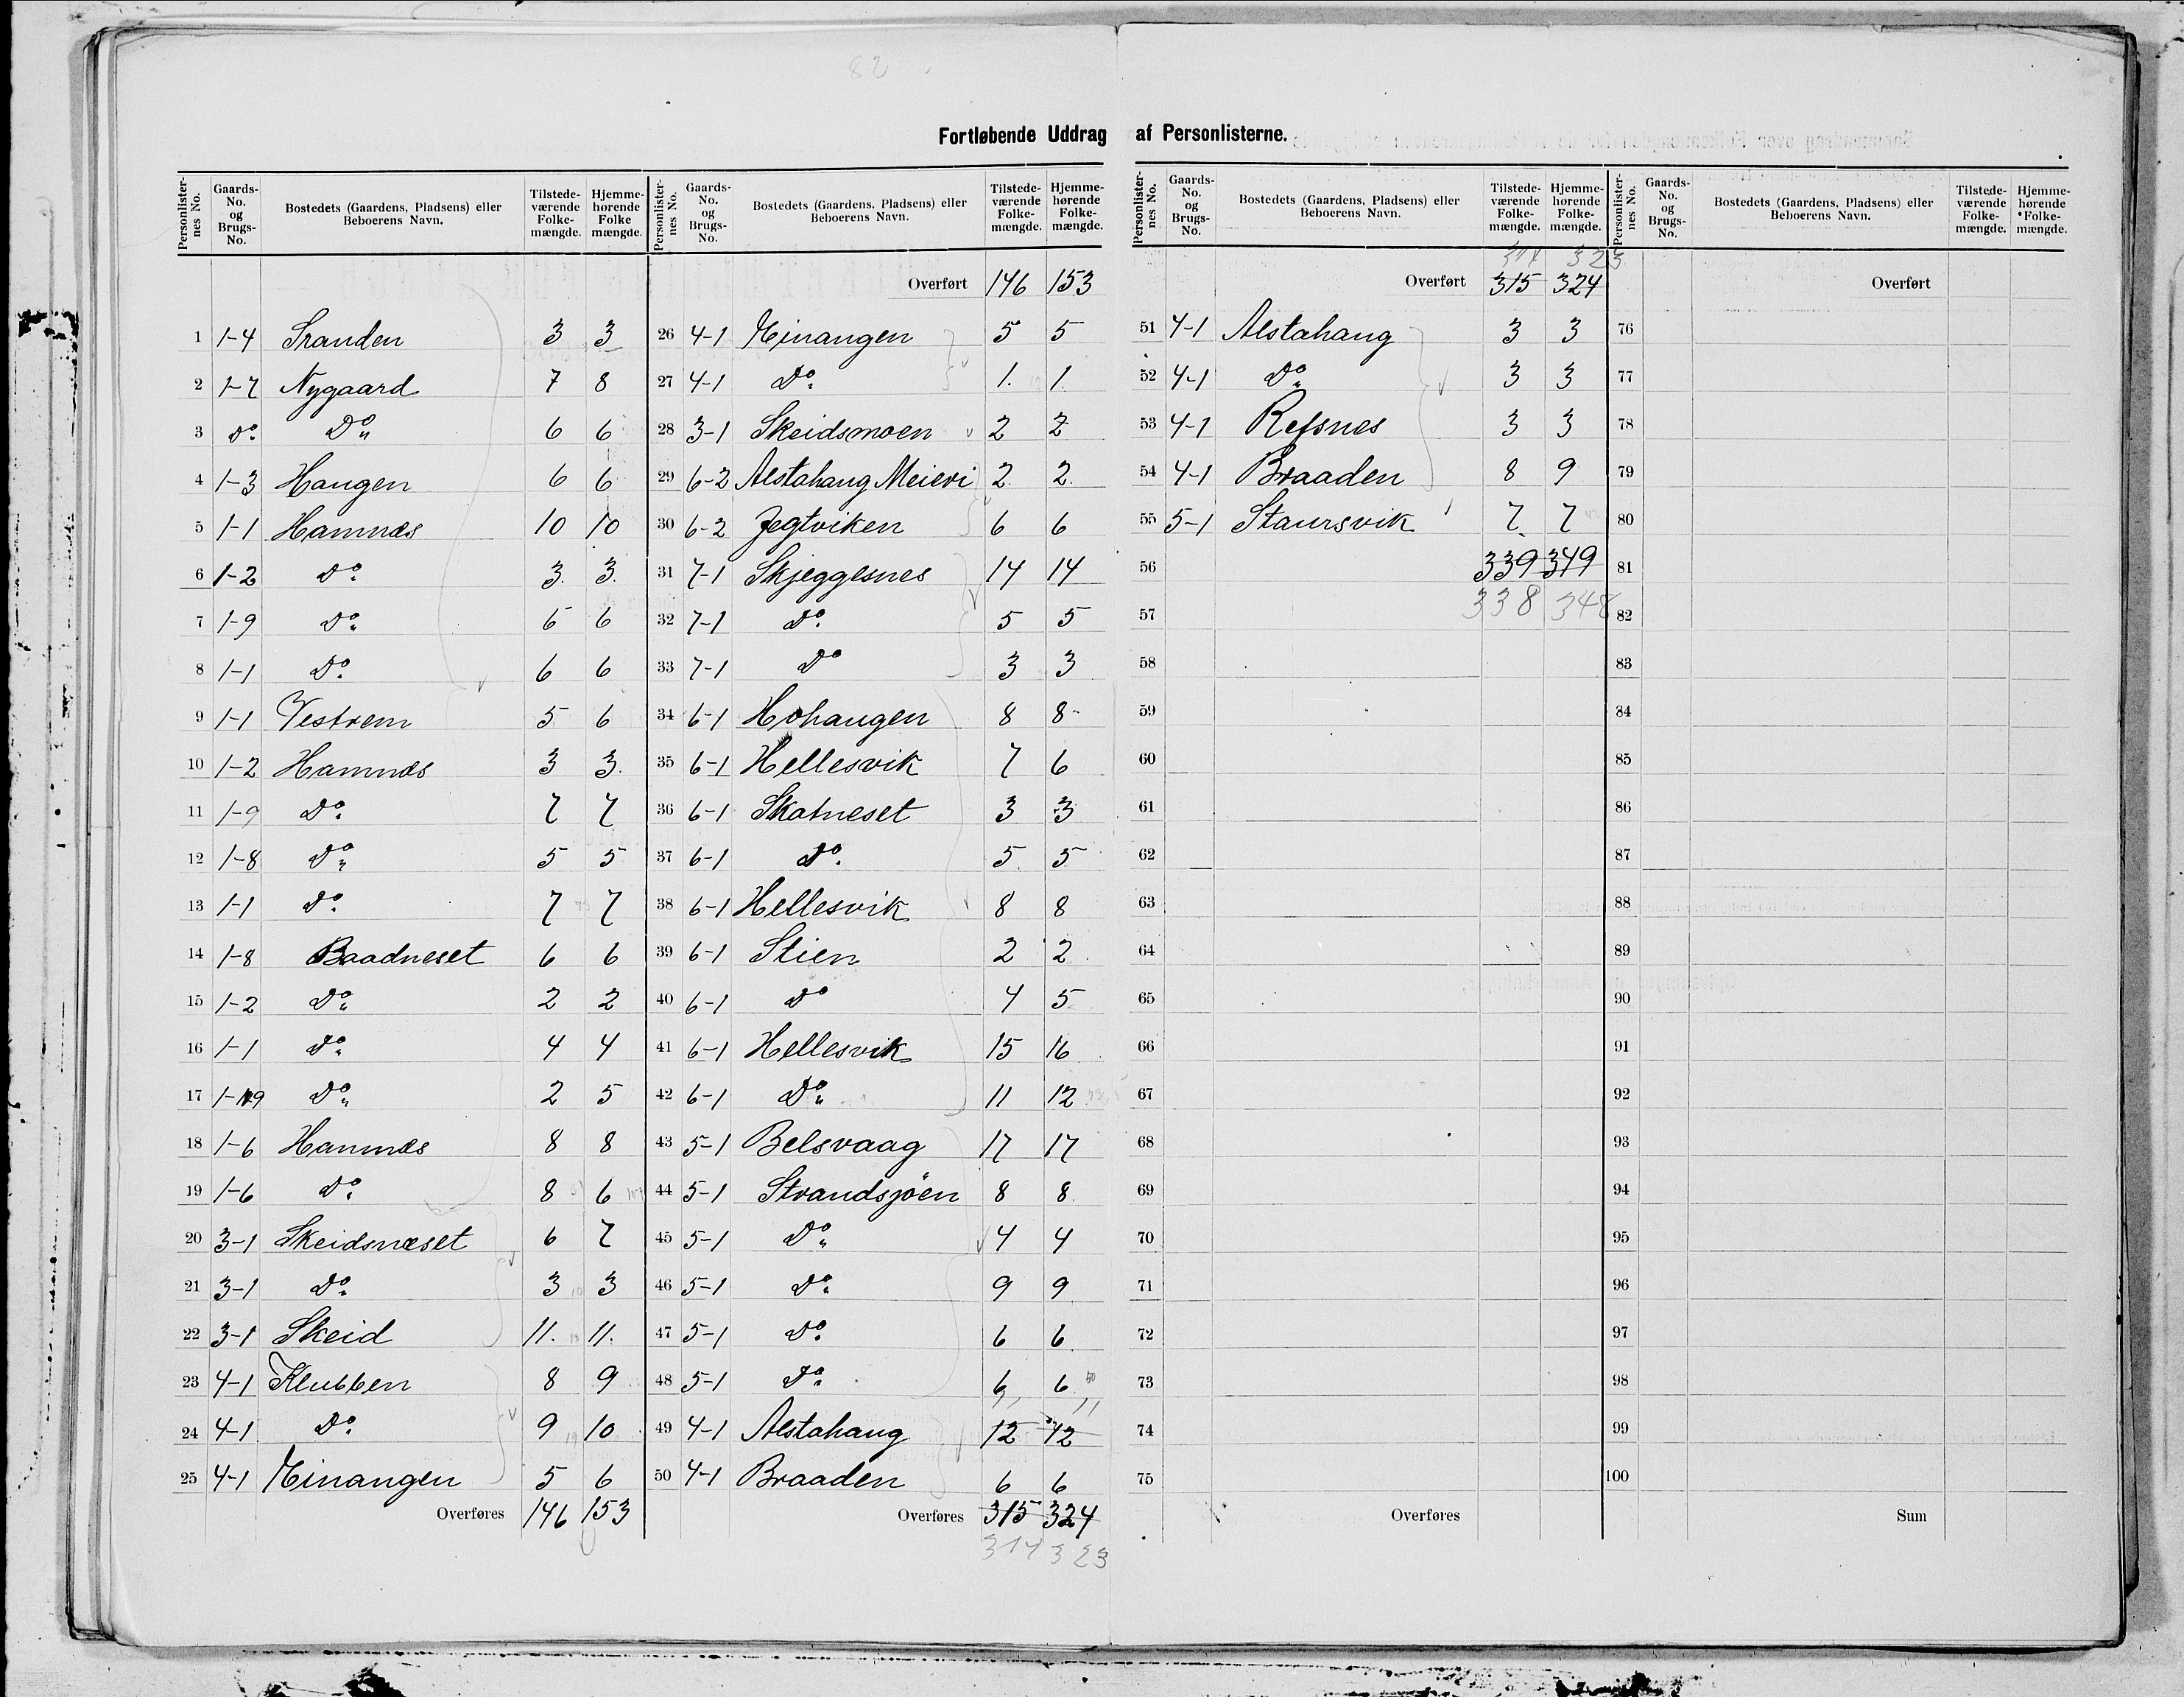 82
Fortløbende Uddrag af Personlisterne.
Personlister-nes No. | Gaards-No. og Brugs-No. | Bostedets (Gaardens, Pladsens) eller Beboerens Navn. | Tilstede-værende Folke-mængde. | Hjemme-hørende Folke mængde.
1 1-4 Sranden 3 3
2 1-7 Nygaard 7 8
3 Do Do 6 6
4 1-3 Haugen 6 6
5 1-1 Hamnæs 10 10
6 1-2 Do 3 3
7 1-9 Do 6 6
8 1-1 Do 6 6
9 1-1 Vestrem 5 6
10 1-2 Hamnæs 3 3
11 1-9 Do 7 7
12 1-8 Do 5 5
13 1-1 Do 7 7
14 1-8 Baadneset 6 6
15 1-2 Do 2 2
16 1-1 Do 4 4
17 1-19 Do 2 5
18 1-6 Hamnæs 8 8
19 1-6 Do 8 6
20 3-1 Skeidsnæset 6 7
21 3-1 Do 3 3
22 3-1 Skeid 11. 11.
23 4-1 Klubben 8 9
24 4-1 Do 9 10
25 4-1 Minangen 5 6
Overføres 146 153
Personlister-nes No. | Gaards-No. og Brugs-No. | Bostedets (Gaardens, Pladsens) eller Beboerens Navn. | Tilstede-værende Folke-mængde. | Hjemme-hørende Folke-mængde.
Overført 146 153
26 4-1 Minangen 5 5
27 4-1 Do 1. 1.
28 3-1 Skeidsmoen 2 2
29 6-2 Alstahaug Meieri 2 2
30 6-2 Jegtviken 6 6
31 7-1 Skjeggesnes 14 14
32 7-1 Do 5 5
33 7-1 Do 3 3
34 6-1 Hohaugen 8 8
35 6-1 Hellesvik 7 6
36 6-1 Skatneset 3 3
37 6-1 Do 5 5
38 6-1 Hellesvik 8 8
39 6-1 Stien 2 2
40 6-1 Do 4 5
41 6-1 Hellesvik 15 16
42 6-1 Do 11 12
43 5-1 Belsvaag 17 17
44 5-1 Strandsjöen 8 8
45 5-1 Do 4 4
46 5-1 Do 9 9
47 5-1 Do 6 6
48 5-1 Do 6 6
49 4-1 Alstahaug 12 12
50 4-1 Braaden 6 6
Overføres 315 324
314 323
Personlister-nes No. | Gaards-No. og Brugs-No. | Bostedets (Gaardens, Pladsens) eller Beboerens Navn. | Tilstede-værende Folke-mængde. | Hjemme-hørende Folke-mængde.
314 323
Overført 315 324
51 4-1 Alstahaug 3 3
52 4-1 Do 3 3
53 4-1 Refsnes 3 3
54 4-1 Braaden 8 9
55 5-1 Staursvik 7 7
56 339 349
57 338 348
58
59
60
61
62
63
64
65
66
67
68
69
70
71
72
73
74
75
Overføres
Personlister-nes No. | Gaards-No. og Brugs-No. | Bostedets (Gaardens, Pladsens) eller Beboerens Navn. | Tilstede-værende Folke-mængde. | Hjemme-hørende Folke-mængde.
Overført
76
77
78
79
80
81
82
83
84
85
86
87
88
89
90
91
92
93
94
95
96
97
98
99
100
Sum